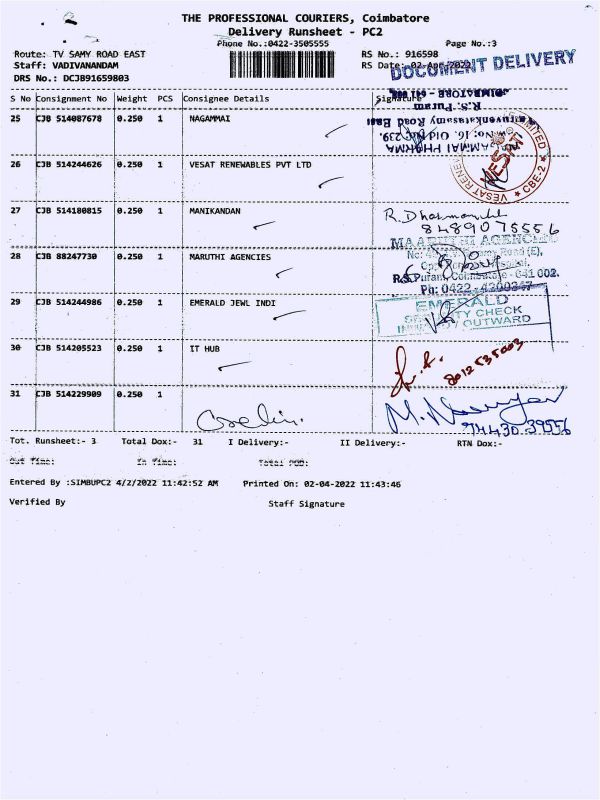 THE PROFESSIONAL COURIERS, Coimbatore
Delivery Runsheet - PC2
Phone No.:0422-3505555 Page No.:3
Route: TV SAMY ROAD EAST RS No.: 916598
Staff: VADIVANANDAM RS Date: 02-Apr-2022
DRS No.: DCJB91659803
DOCUMENT DELIVERY
S No Consignment No Weight PCS Consignee Details Signature
25 CJB 514087678 0.250 1 NAGAMMAI
COIMBATORE - 641 002.
R.S. Puram
Road East
No: 16, Old No: 239,
PHARMA
26 CJB 514244626 0.250 1 VESAT RENEWABLES PVT LTD
VESAT RENE LIMITED ★ CBE-2 ★
VESAT
27 CJB 514180815 0.250 1 MANIKANDAN
8489075556
28 CJB 88247730 0.250 1 MARUTHI AGENCIES
MAARUTHI AGENCIES
Road (E),
R.S.Puram, Coimbatore - 641 002.
Ph: 0422-4300347
29 CJB 514244986 0.250 1 EMERALD JEWL INDI
EMERALD
SECURITY CHECK
INWARD / OUTWARD
30 CJB 514205523 0.250 1 IT HUB
31 CJB 514229909 0.250 1
94430 39556
Tot. Runsheet:- 3 Total Dox:- 31 I Delivery:- II Delivery:- RTN Dox:-
Out Time: In Time: Total POD:
Entered By :SIMBUPC2 4/2/2022 11:42:52 AM Printed On: 02-04-2022 11:43:46
Verified By Staff Signature